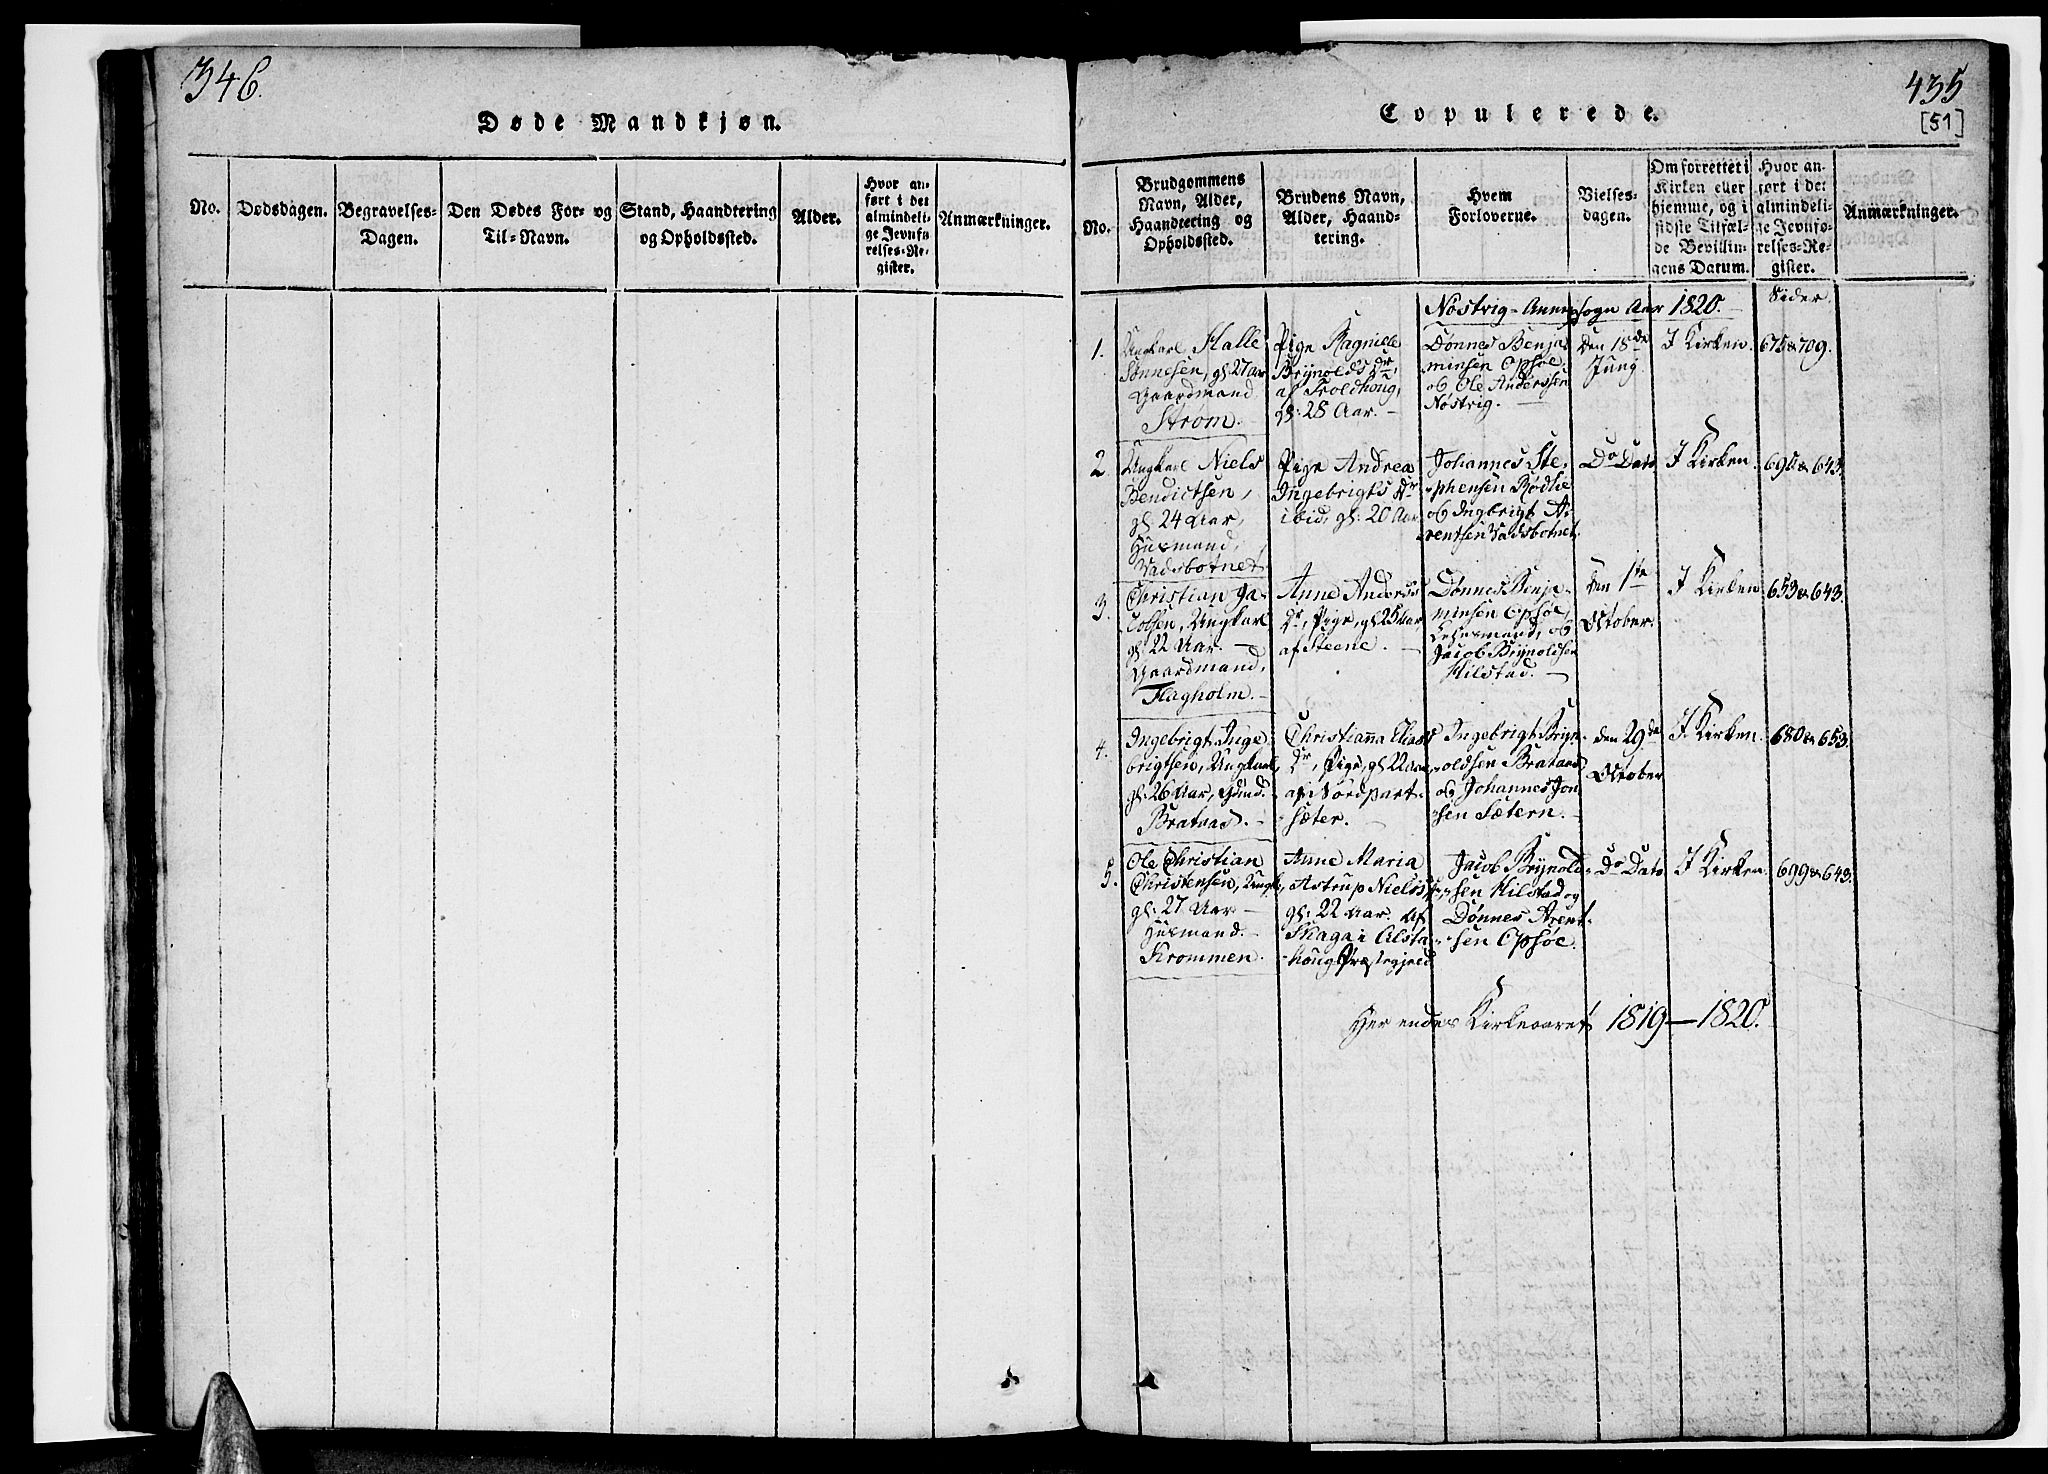 346.
Døde Mandkjøn.
No.
Dødsdagen.
Begravelses-
Dagen.
Den Dødes For- og
Til-Navn.
Stand, Haandtering
og Opholdssted.
Alder.
Hvor an-
ført i det
almindeli-
ge Jevnfø-
relses-Re-
gister.
Anmærkninger.
435
[51]
Copulerede.
No.
Brudgommens
Navn, Alder,
Haandtering og
Opholdssted.
Brudens Navn,
Alder, Haand-
tering.
Hvem
Forloverne.
Vielses-
dagen.
Om forrettet i
Kirken eller
hjemme, og i
sidste Tilfæl-
de Bevillin-
gens Datum.
Hvor an-
ført i det
almindeli-
ge Jevnfø-
relses-Re-
gister.
Anmærkninger.
Nøstvig-Annexsogn Aar 1820.
Sider.
1.
Ungkarl Halle
Sønnesen, gl: 27 Aar
Gaardmand
Strøm.
Pige Ragnille
Brynolds Dr,
af Troldhoug,
gl: 28 Aar.
Dønnes Benja-
minsen Opsøe,
og Ole Anderssen
Nøstvig.
Den 18de
Juny
I Kirken.
678 & 709.
2
Ungkarl Niels
Bendictsen,
gl: 24 Aar,
Huusmand,
Vadsbotnet
Pige Andrea
Ingebrigts Dr
ibid, gl: 20 Aar
Johannes Ste-
phensen Rødlie
og Ingbrigt A-
rentsen Vadsbotnet.
Do Dato
I Kirken.
690 & 643.
3.
Christian Ja-
cobsen, Ungkarl
gl: 22 Aar.
Gaardmand,
Flagholm.
Anne Anders
Dr, Pige, gl: 25 Aar,
af Steene.
Dønnes Benja-
minsen Opsøe,
Lehnsmand, og
Jacob Brynoldsen
Hilstad.
Den 1ste
October.
I Kirken
653 & 643.
4.
Ingebrigt Inge-
brigtsen, Ungkarl,
gl: 26 Aar, Gmd.
Brataas.
Christianna Elias
Dr, Pige, gl: 22 Aar,
af Nordpart-
sæter.
Ingebrigt Bryn-
oldsen Brataas
og Johannes Jon-
sen Sætern.
den 29de
October
I Kirken.
680 & 653.
5.
Ole Christian
Christensen, Ungk,
gl: 27 Aar
Huusmand.
Krommen.
Anne Maria
Astrup Niels
gl: 22 Aar. Af
Skaga i Alsta-
houg Præstegjeld
Jacob Brynold-
sen Hilstad og
Dønnes Arent-
sen Opsøe.
Do Dato
I Kirken.
699 & 643.
Her endes Kirkeaaret 1819—1820.